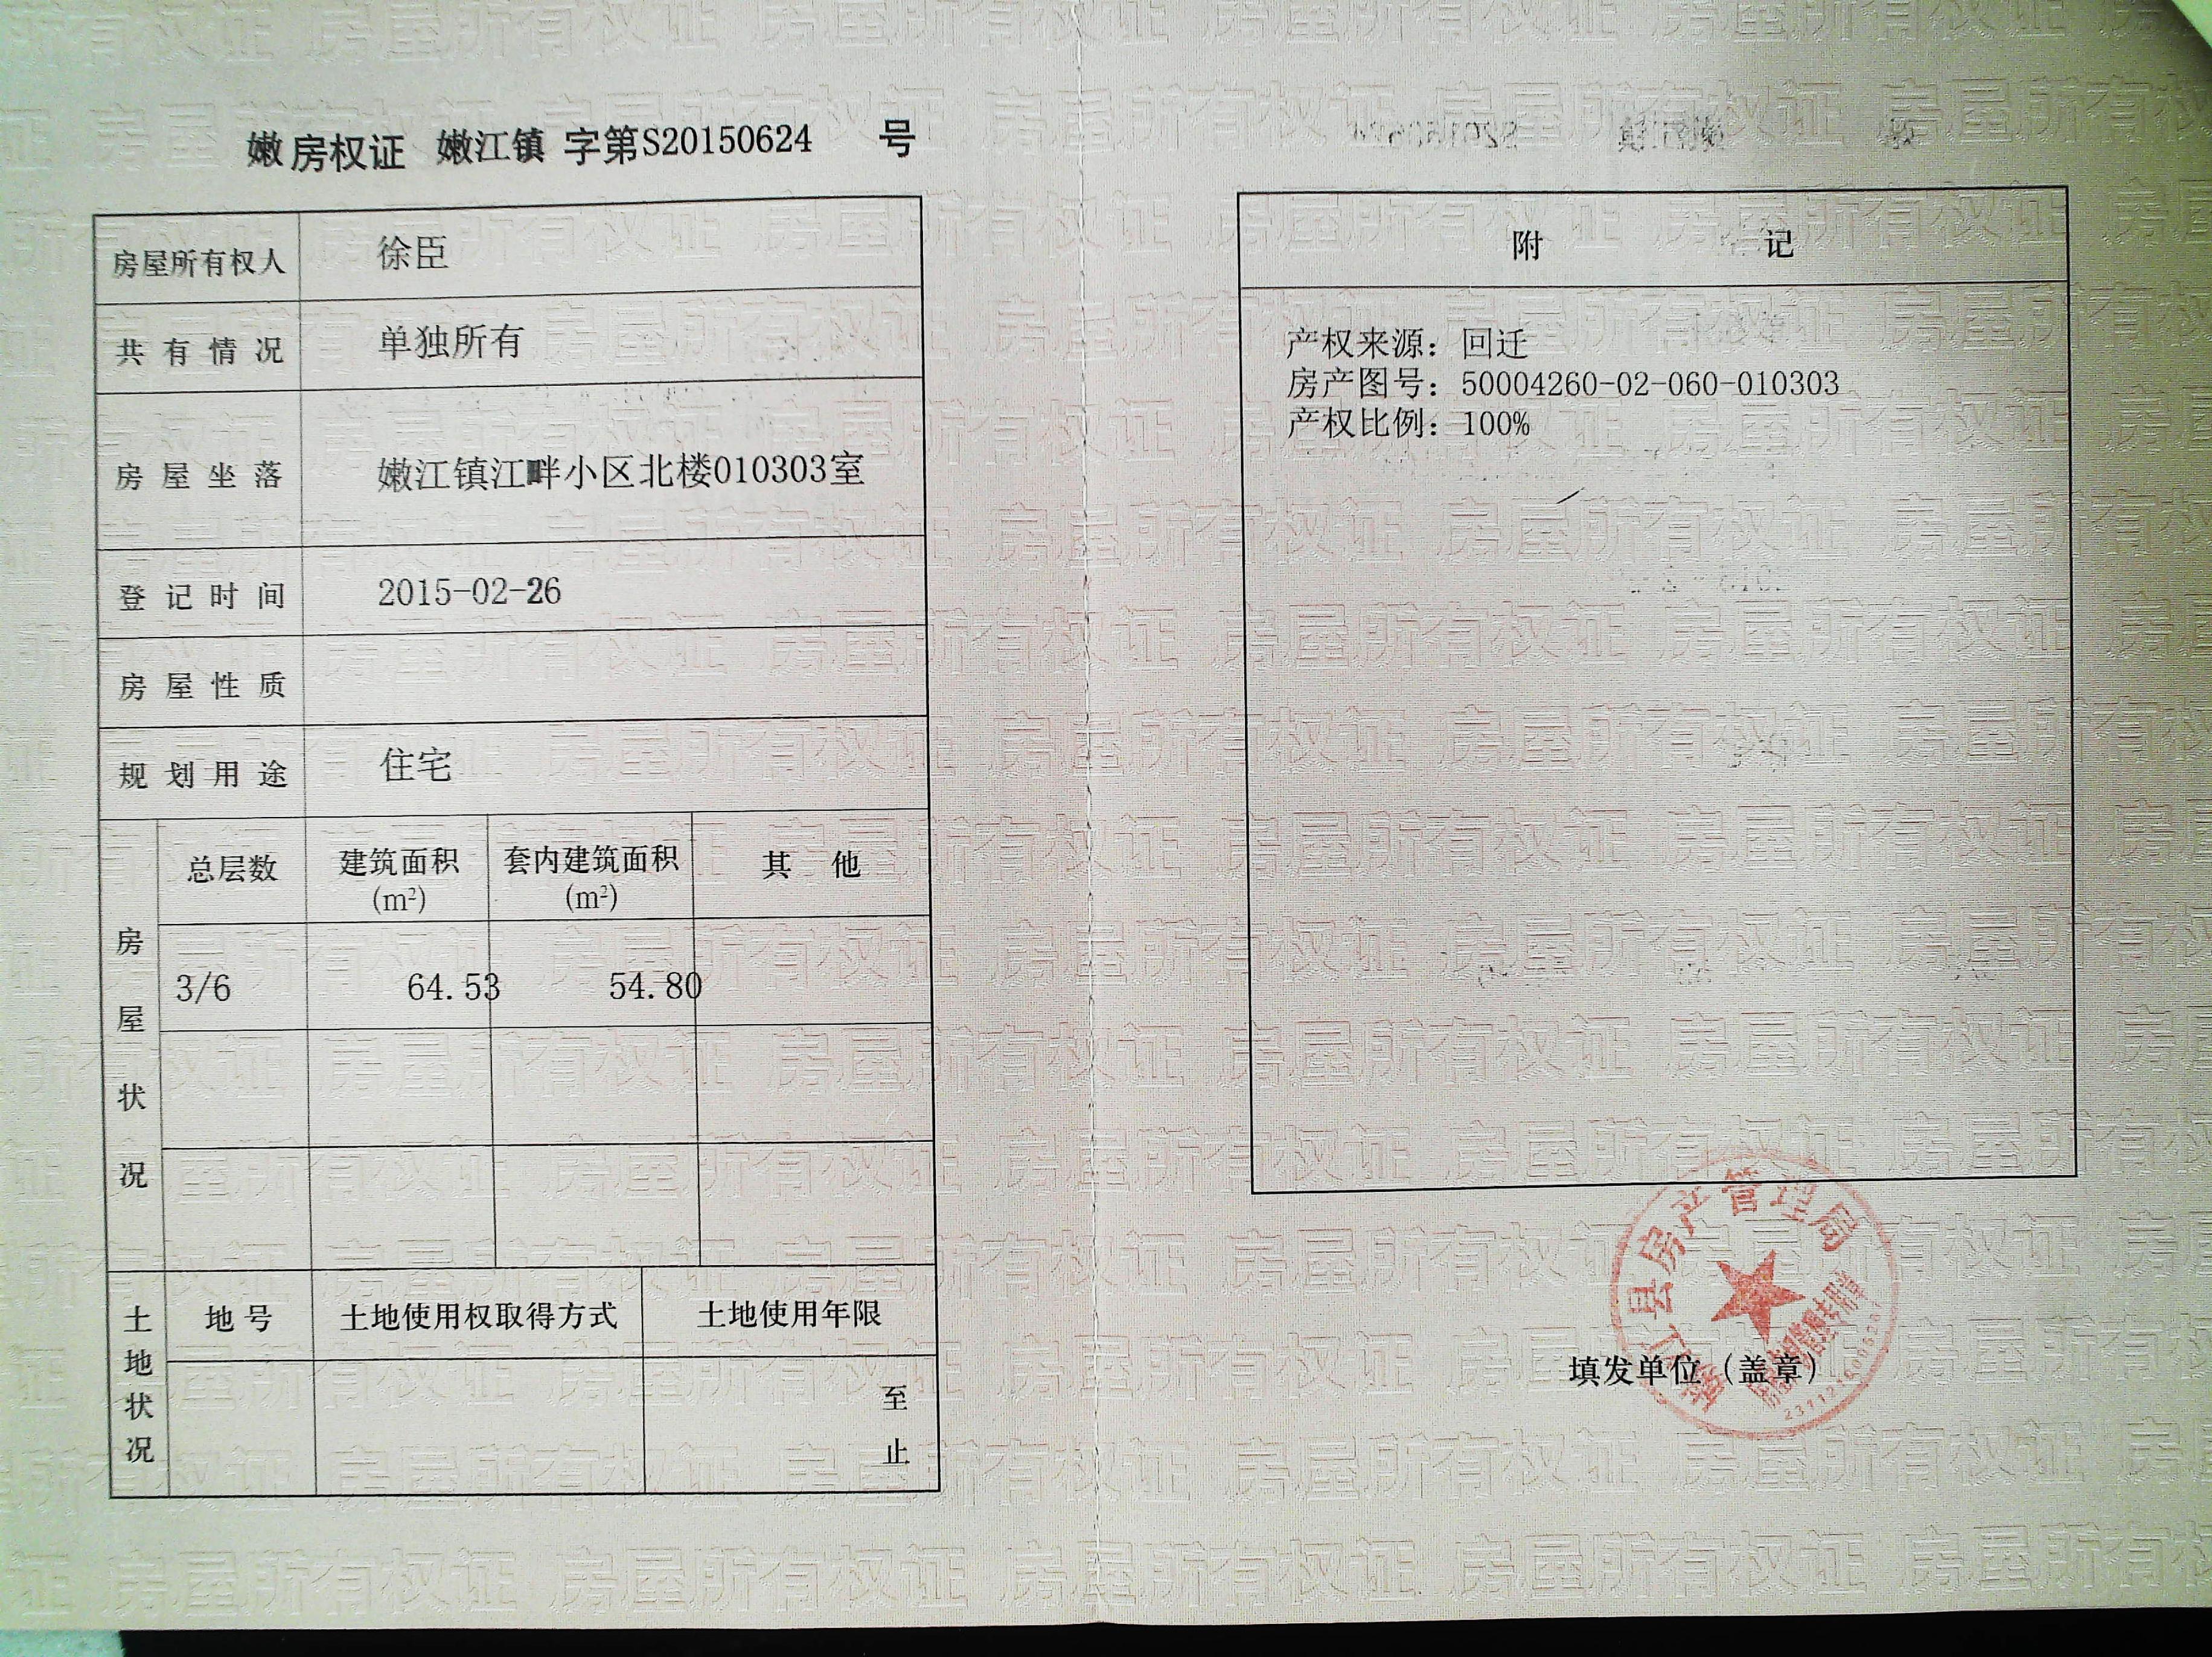 嫩房权证 嫩江镇 字第S20150624 号
房屋所有权人 徐臣
共有情况 单独所有
房屋坐落 嫩江镇江畔小区北楼010303室
登记时间 2015-02-26
房屋性质
规划用途 住宅
房屋状况
总层数 建筑面积(m²) 套内建筑面积(m²) 其他
3/6 64.53 54.80
土地状况
地号 土地使用权取得方式 土地使用年限
至
止
附记
产权来源：回迁
房产图号：50004260-02-060-010303
产权比例：100%
江县房产管理局
填发单位（盖章）
房屋所有权证